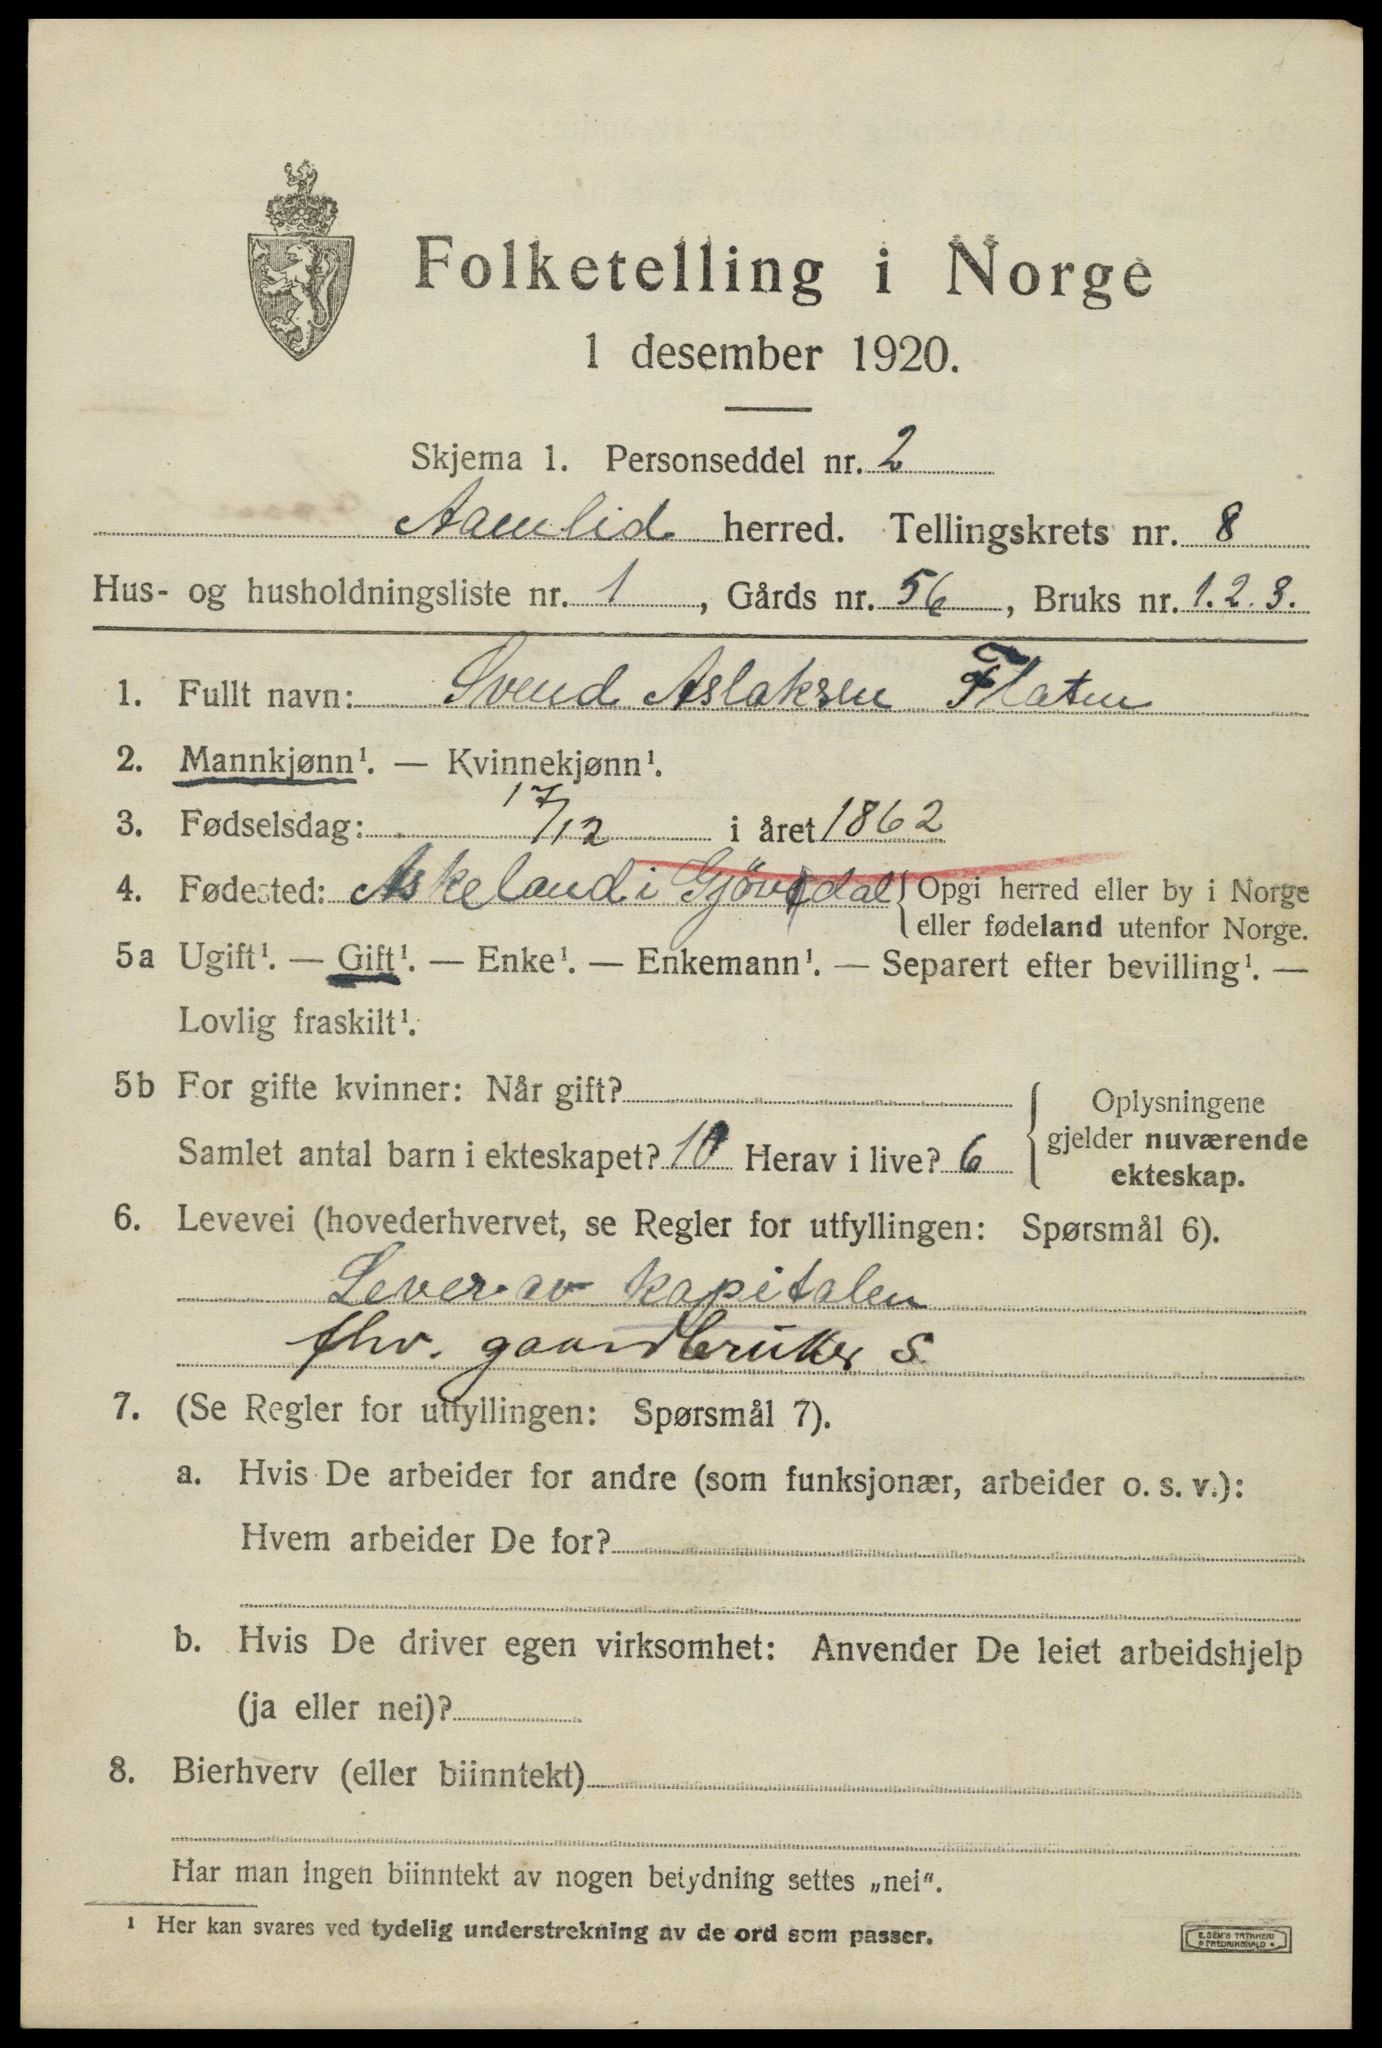 Folketelling i Norge
1 desember 1920.
Skjema 1. Personseddel nr. 2
Aamlid herred. Tellingskrets nr. 8
Hus- og husholdningsliste nr. 1, Gårds nr. 56, Bruks nr. 1.2.3.
1. Fullt navn: Svend Aslaksen Flaten
2. Mannkjønn¹. — Kvinnekjønn¹.
3. Fødselsdag: 17/12 i året 1862
4. Fødested: Askeland i Gjøvdal {Opgi herred eller by i Norge
eller fødeland utenfor Norge.
5a Ugift¹. — Gift¹. — Enke¹. — Enkemann¹. — Separert efter bevilling¹. —
Lovlig fraskilt¹.
5b For gifte kvinner: Når gift?
Samlet antal barn i ekteskapet? 10 Herav i live? 6
{ Oplysningene
gjelder nuværende
ekteskap.
6. Levevei (hovederhvervet, se Regler for utfyllingen: Spørsmål 6).
Lever av kapitalen
fhv. gaardbruker S.
7. (Se Regler for utfyllingen: Spørsmål 7).
a. Hvis De arbeider for andre (som funksjonær, arbeider o. s. v.):
Hvem arbeider De for?
b. Hvis De driver egen virksomhet: Anvender De leiet arbeidshjelp
(ja eller nei)?
8. Bierhverv (eller biinntekt)
Har man ingen biinntekt av nogen betydning settes „nei".
¹ Her kan svares ved tydelig understrekning av de ord som passer.
E. SEM'S TRYKKERI
FREDRIKSHALD